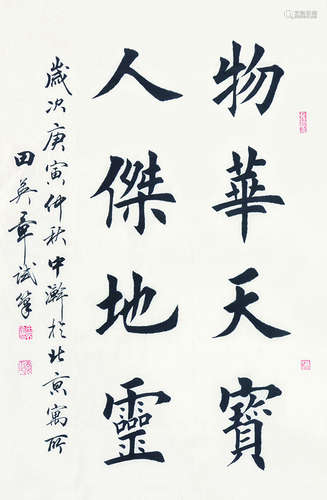 物華天寶
人傑地靈
歲次庚寅仲秋中瀚於北京寓所
田英章試筆